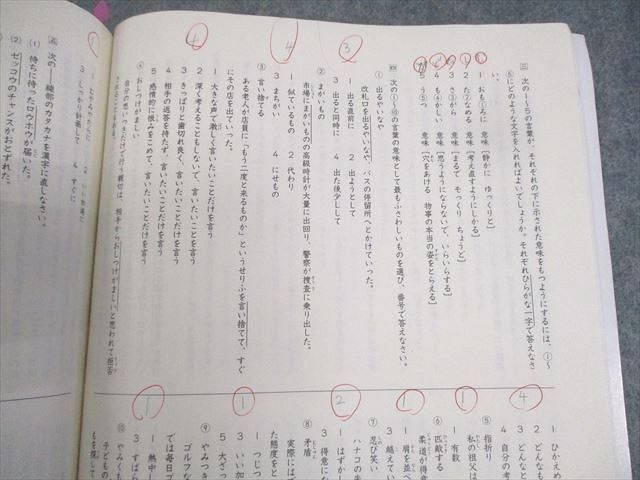 三 次の1〜5の言葉が、それぞれの下に示された意味をもつようにするには、①〜
⑤にどのような文字を入れればよいでしょうか。それぞれひらがな一字で答えなさ
1 おも①ろに 意味［静かに ゆっくりと］
2 た②なめる 意味［考え直すようにしかる］
3 さ③がら 意味［まるで そっくり ちょうど］
4 も④かしい 意味［思うようにならないで、いらいらする］
5 う⑤つ 意味［穴をあける 物事の本当の姿をとらえる］
四 次の①〜⑩の言葉の意味として最もふさわしいものを選び、番号で答えなさい。
① 出るやいなや
改札口を出るやいなや、バスの停留所へとかけていった。
1 出る直前に 2 出ようとして
3 出ると同時に 4 出た後少しして
② まがいもの
市場にまがいものの高級時計が大量に出回り、警察が捜査に乗り出した。
1 似ているもの 2 代わり
3 まちがい 4 にせもの
③ 言い捨てる
ある老人が店員に「もう二度と来るものか」というせりふを言い捨てて、すぐ
にその店を出ていった。
1 大きな声で激しく言いたいことだけを言う
2 深く考えることもしないで、言いたいことを言う
3 きっぱりと歯切れ良く、言いたいことだけを言う
4 相手の返答を待たず、言いたいことだけを言う
5 感情的に恨みをこめて、言いたいことだけを言う
④ おしつけがましい
自分の思いつきだけで行う親切は、相手からおしつけがましいと思われて拒否
3 しっかり計画して 4 すぐに
五 次の――線部のカタカナを漢字に直しなさい。
(1) 待ちに待ったロウホウが届いた。
(2) ゼッコウのチャンスがおとずれた。
1 ひかえめ
2 どんなも
3 どんなと
4 自分の考
⑤ 指折り
私の祖父は
1 有数
⑥ 匹敵する
柔道が得意
1 肩を並べ
3 越えてい
⑦ 忍び笑い
ハナコの失
1 はずかし
3 得意にな
⑧ 矛盾
実際には
た態度をと
1 つじつ
3 いい加
5 大ざっ
⑨ やみつき
ゴルフな
では毎日プ
1 熱中し
3 すばら
⑩ やみくも
子どもの
もを探して